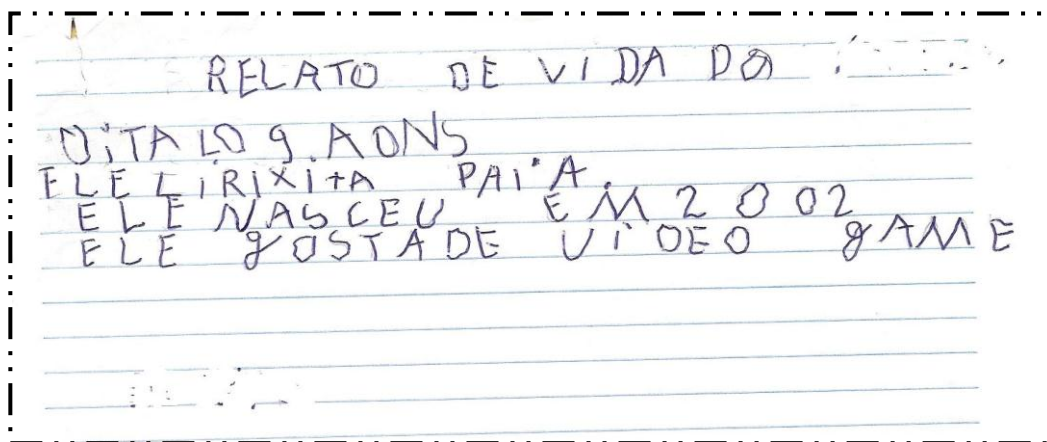 RELATO DE VIDA DO
OITALO 9.AONS
ELE LIRIXITA PAI'A.
ELE NASCEU EM 2002
ELE gOSTADE VIDEO gAME